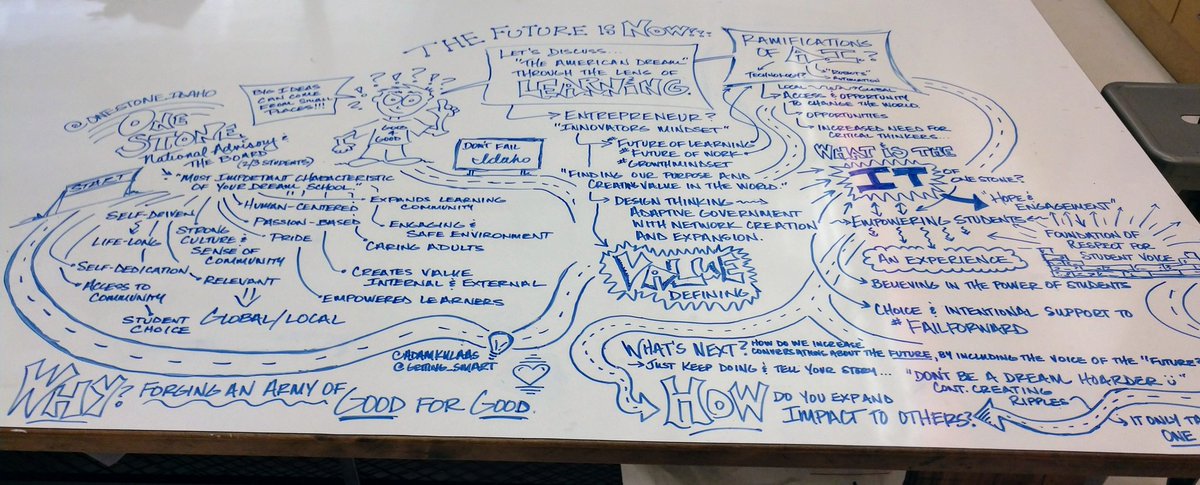 THE FUTURE IS NOW!!!
@ONESTONE.IDAHO
ONE
STONE
National Advisory &
THE BOARD
(2/3 STUDENTS)
BIG IDEAS
CAN COME
FROM SMALL
PLACES!!!
? ? ? ? ? ?
GOOD
4
GOOD
START
"MOST IMPORTANT CHARACTERISTIC
OF YOUR DREAM SCHOOL."
SELF-DRIVEN
LIFE-LONG
SELF-DEDICATION
ACCESS TO
COMMUNITY
STUDENT
CHOICE
STRONG
CULTURE &
SENSE OF
COMMUNITY
RELEVANT
GLOBAL/LOCAL
HUMAN-CENTERED
PASSION-BASED
PRIDE
EXPANDS LEARNING
COMMUNITY
ENGAGING &
SAFE ENVIRONMENT
CARING ADULTS
CREATES VALUE
INTERNAL & EXTERNAL
EMPOWERED LEARNERS
DON'T FAIL
Idaho
LET'S DISCUSS...
"THE AMERICAN DREAM"
THROUGH THE LENS OF
LEARNING.
ENTREPRENEUR?
"INNOVATORS MINDSET"
#FUTURE OF LEARNING
#FUTURE OF WORK
#GROWTHMINDSET
"FINDING OUR PURPOSE AND
CREATING VALUE IN THE WORLD."
DESIGN THINKING
ADAPTIVE GOVERNMENT
WITH NETWORK CREATION
AND EXPANSION.
VALUE
DEFINING
RAMIFICATIONS
OF A.I.?
TECHNOLOGY?
"ROBOTS"
AUTOMATION
LOCAL GLOBAL
ACCESS & OPPORTUNITY
TO CHANGE THE WORLD.
OPPORTUNITIES
INCREASED NEED FOR
CRITICAL THINKERS.
WHAT IS THE
IT
OF
ONE STONE?
"HOPE &
ENGAGEMENT"
EMPOWERING STUDENTS
FOUNDATION OF
RESPECT FOR
STUDENT VOICE
AN EXPERIENCE
BELIEVING IN THE POWER OF STUDENTS
CHOICE & INTENTIONAL SUPPORT TO
# FAILFORWARD
@ADAMKULAAS
@GETTING_SMART
WHY? FORGING AN ARMY OF
GOOD FOR GOOD.
WHAT'S NEXT? HOW DO WE INCREASE
CONVERSATIONS ABOUT THE FUTURE, BY INCLUDING THE VOICE OF THE "FUTURE
JUST KEEP DOING & TELL YOUR STORY....
"DON'T BE A DREAM HOARDER"
CONT. CREATING
RIPPLES
HOW DO YOU EXPAND
IMPACT TO OTHERS?
IT ONLY TO
ONE